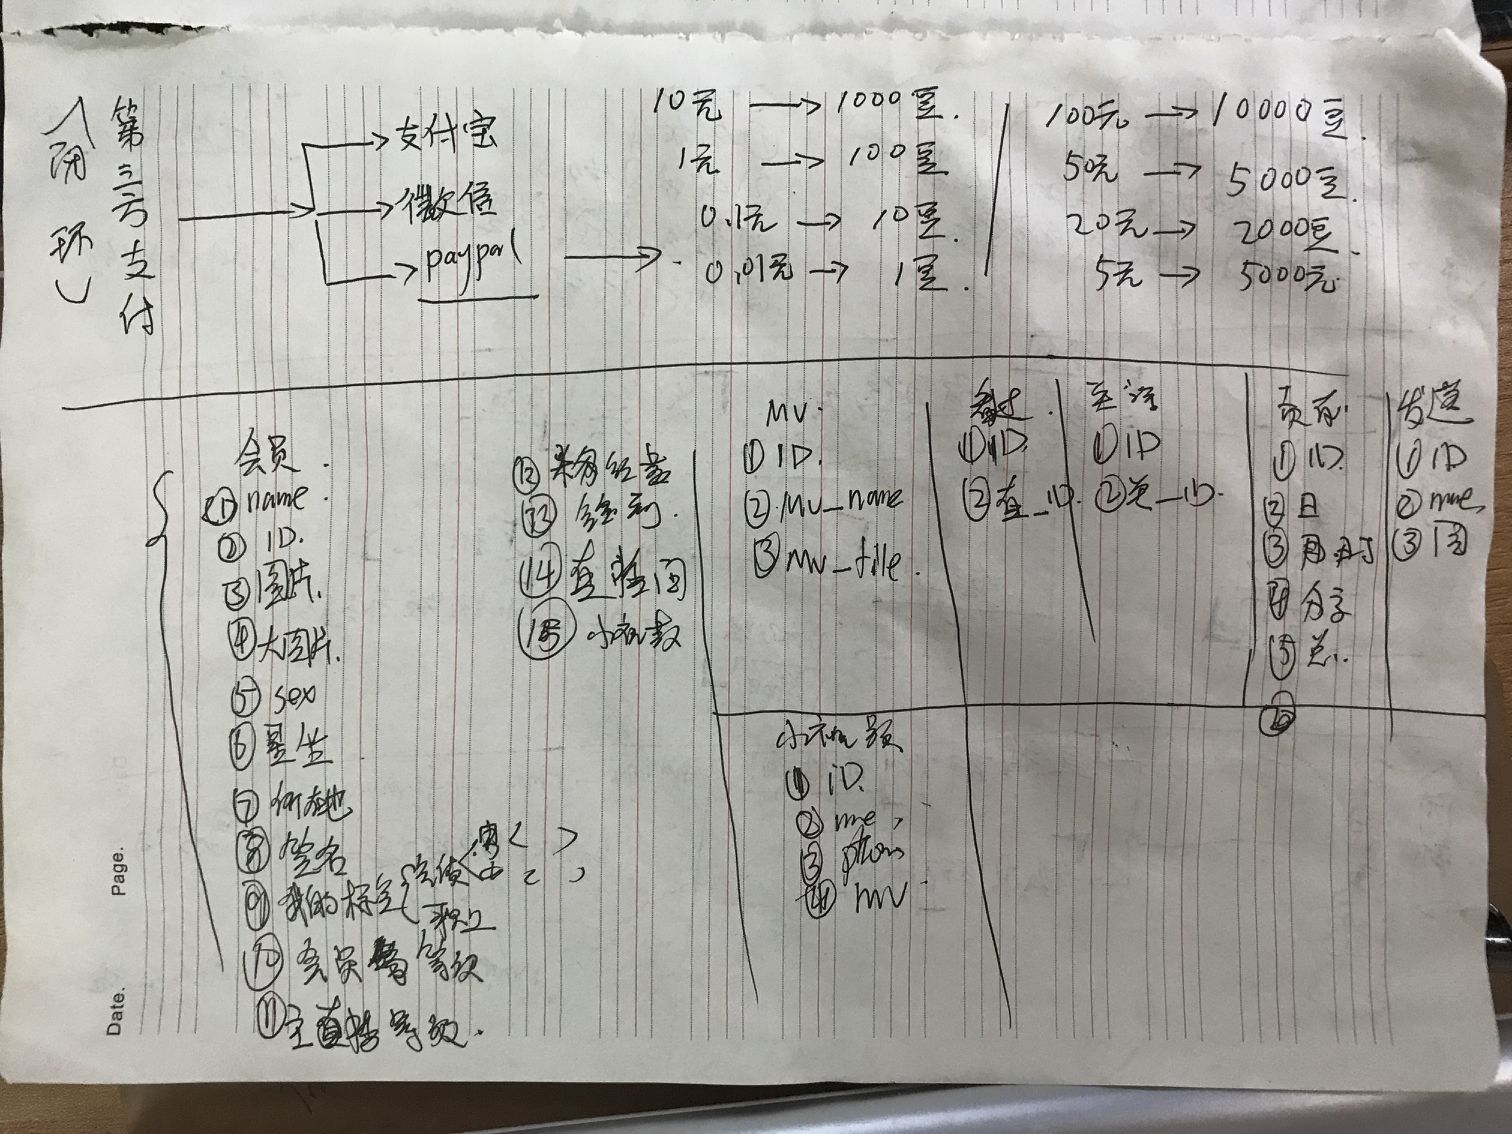 （闭环）
第三方支付
支付宝
微信
paypal
10元 → 1000豆.
1元 → 100豆
0.1元 → 10豆.
0.01元 → 1豆.
100元 → 10000豆.
50元 → 5000豆.
20元 → 2000豆.
5元 → 5000元.
会员.
① name.
② ID.
③ 图片.
④ 大图片.
⑤ sex
⑥ 星坐
⑦ 所在地
⑧ 签名
⑨ 我的标签
职业
⑩ 会员 等级
⑪ 主直播等级.
⑫
⑬
⑭ 直播间
⑮ 小视频数
MV.
① ID.
② MV_name
③ MV_file.
看过.
① ID.
② 直_ID.
关注
① ID
② 关_ID.
① ID.
② 日
③
④ 分享
⑤
发送
① ID
② nme
③ 图
小视频
① iD.
② nme,
③
④ mv.
Page.
Date.